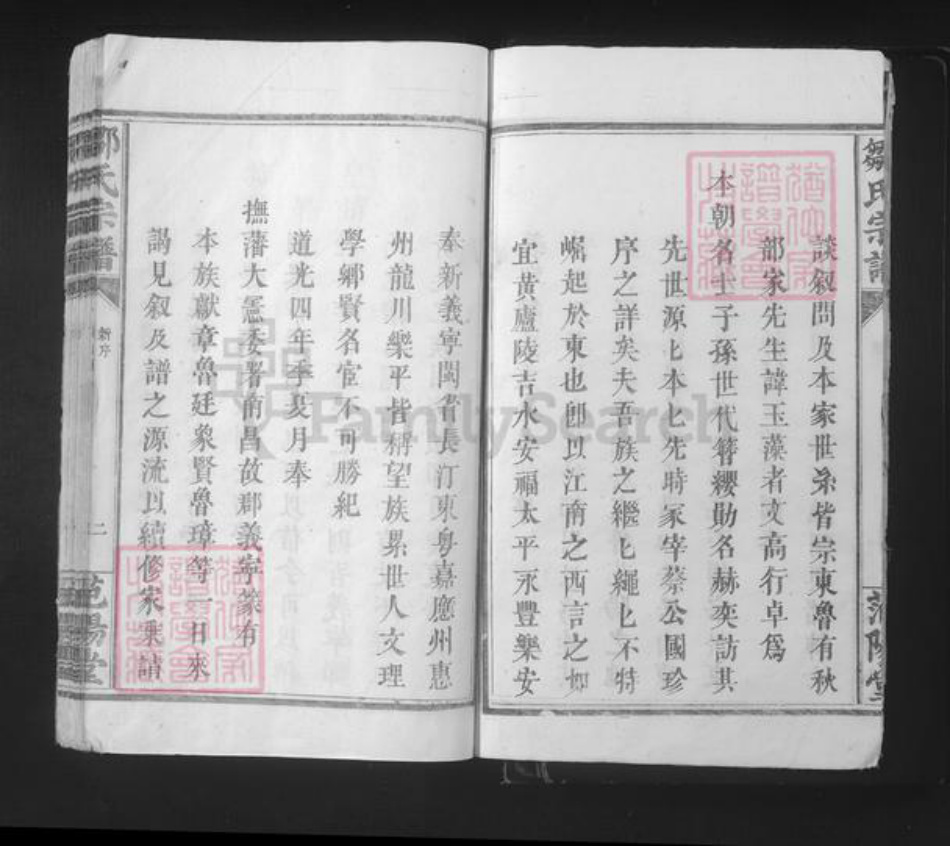 鄒氏宗譜
范陽堂
談叙問及本家世系皆宗東魯有秋
部家先生諱玉藻者文高行卓爲
本朝名士子孫世代簪纓勛名赫奕訪其
先世源匕本匕先時冢宰蔡公國珍
序之詳矣夫吾族之繼匕繩匕不特
崛起於東也卽以江南之西言之如
宜黃廬陵吉水安福太平永豐樂安
奉新義寧閩省長汀東粤嘉應州惠
州龍川樂平皆稱望族累世人文理
學鄉賢名宦不可勝紀
道光四年季夏月奉
撫藩大憲委署南昌故郡義寧篆有
本族獻章魯廷象賢魯璋等一日來
謁見叙及譜之源流以續修家乘請
鄒氏宗譜
新序
二
范陽堂
FamilySearch